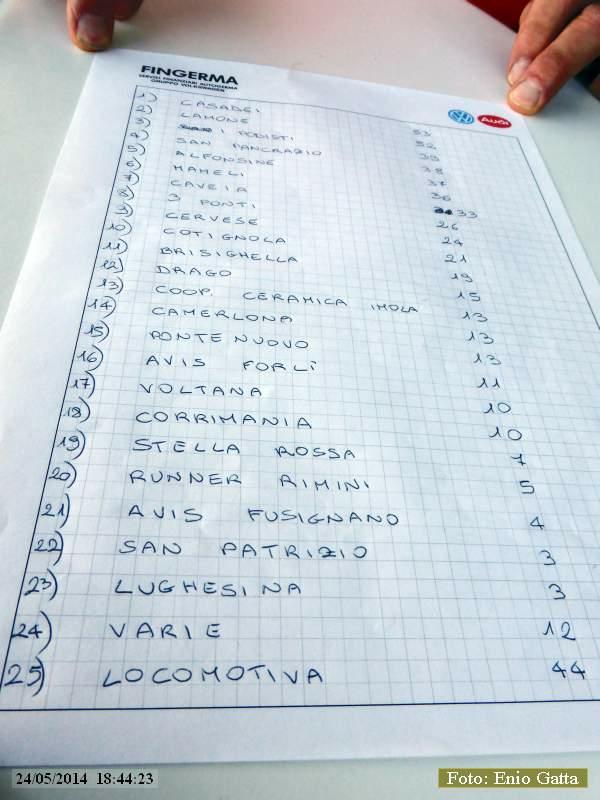 FINGERMA
SERVIZI FINANZIARI AUTOGERMA
GRUPPO VOLKSWAGEN
Audi
1) CASADEI 53
2) LAMONE 52
3) I PODISTI 39
4) SAN PANCRAZIO 38
5) ALFONSINE 37
6) MAMELI 36
7) CAVEIA 33
8) 3 PONTI 26
9) CERVESE 24
10) COTIGNOLA 21
11) BRISIGHELLA 19
12) DRAGO 15
13) COOP. CERAMICA IMOLA 13
14) CAMERLONA 13
15) PONTE NUOVO 13
16) AVIS FORLÌ 11
17) VOLTANA 10
18) CORRIMANIA 10
19) STELLA ROSSA 7
20) RUNNER RIMINI 5
21) AVIS FUSIGNANO 4
22) SAN PATRIZIO 3
23) LUGHESINA 3
24) VARIE 12
25) LOCOMOTIVA 44
24/05/2014 18:44:23
Foto: Enio Gatta